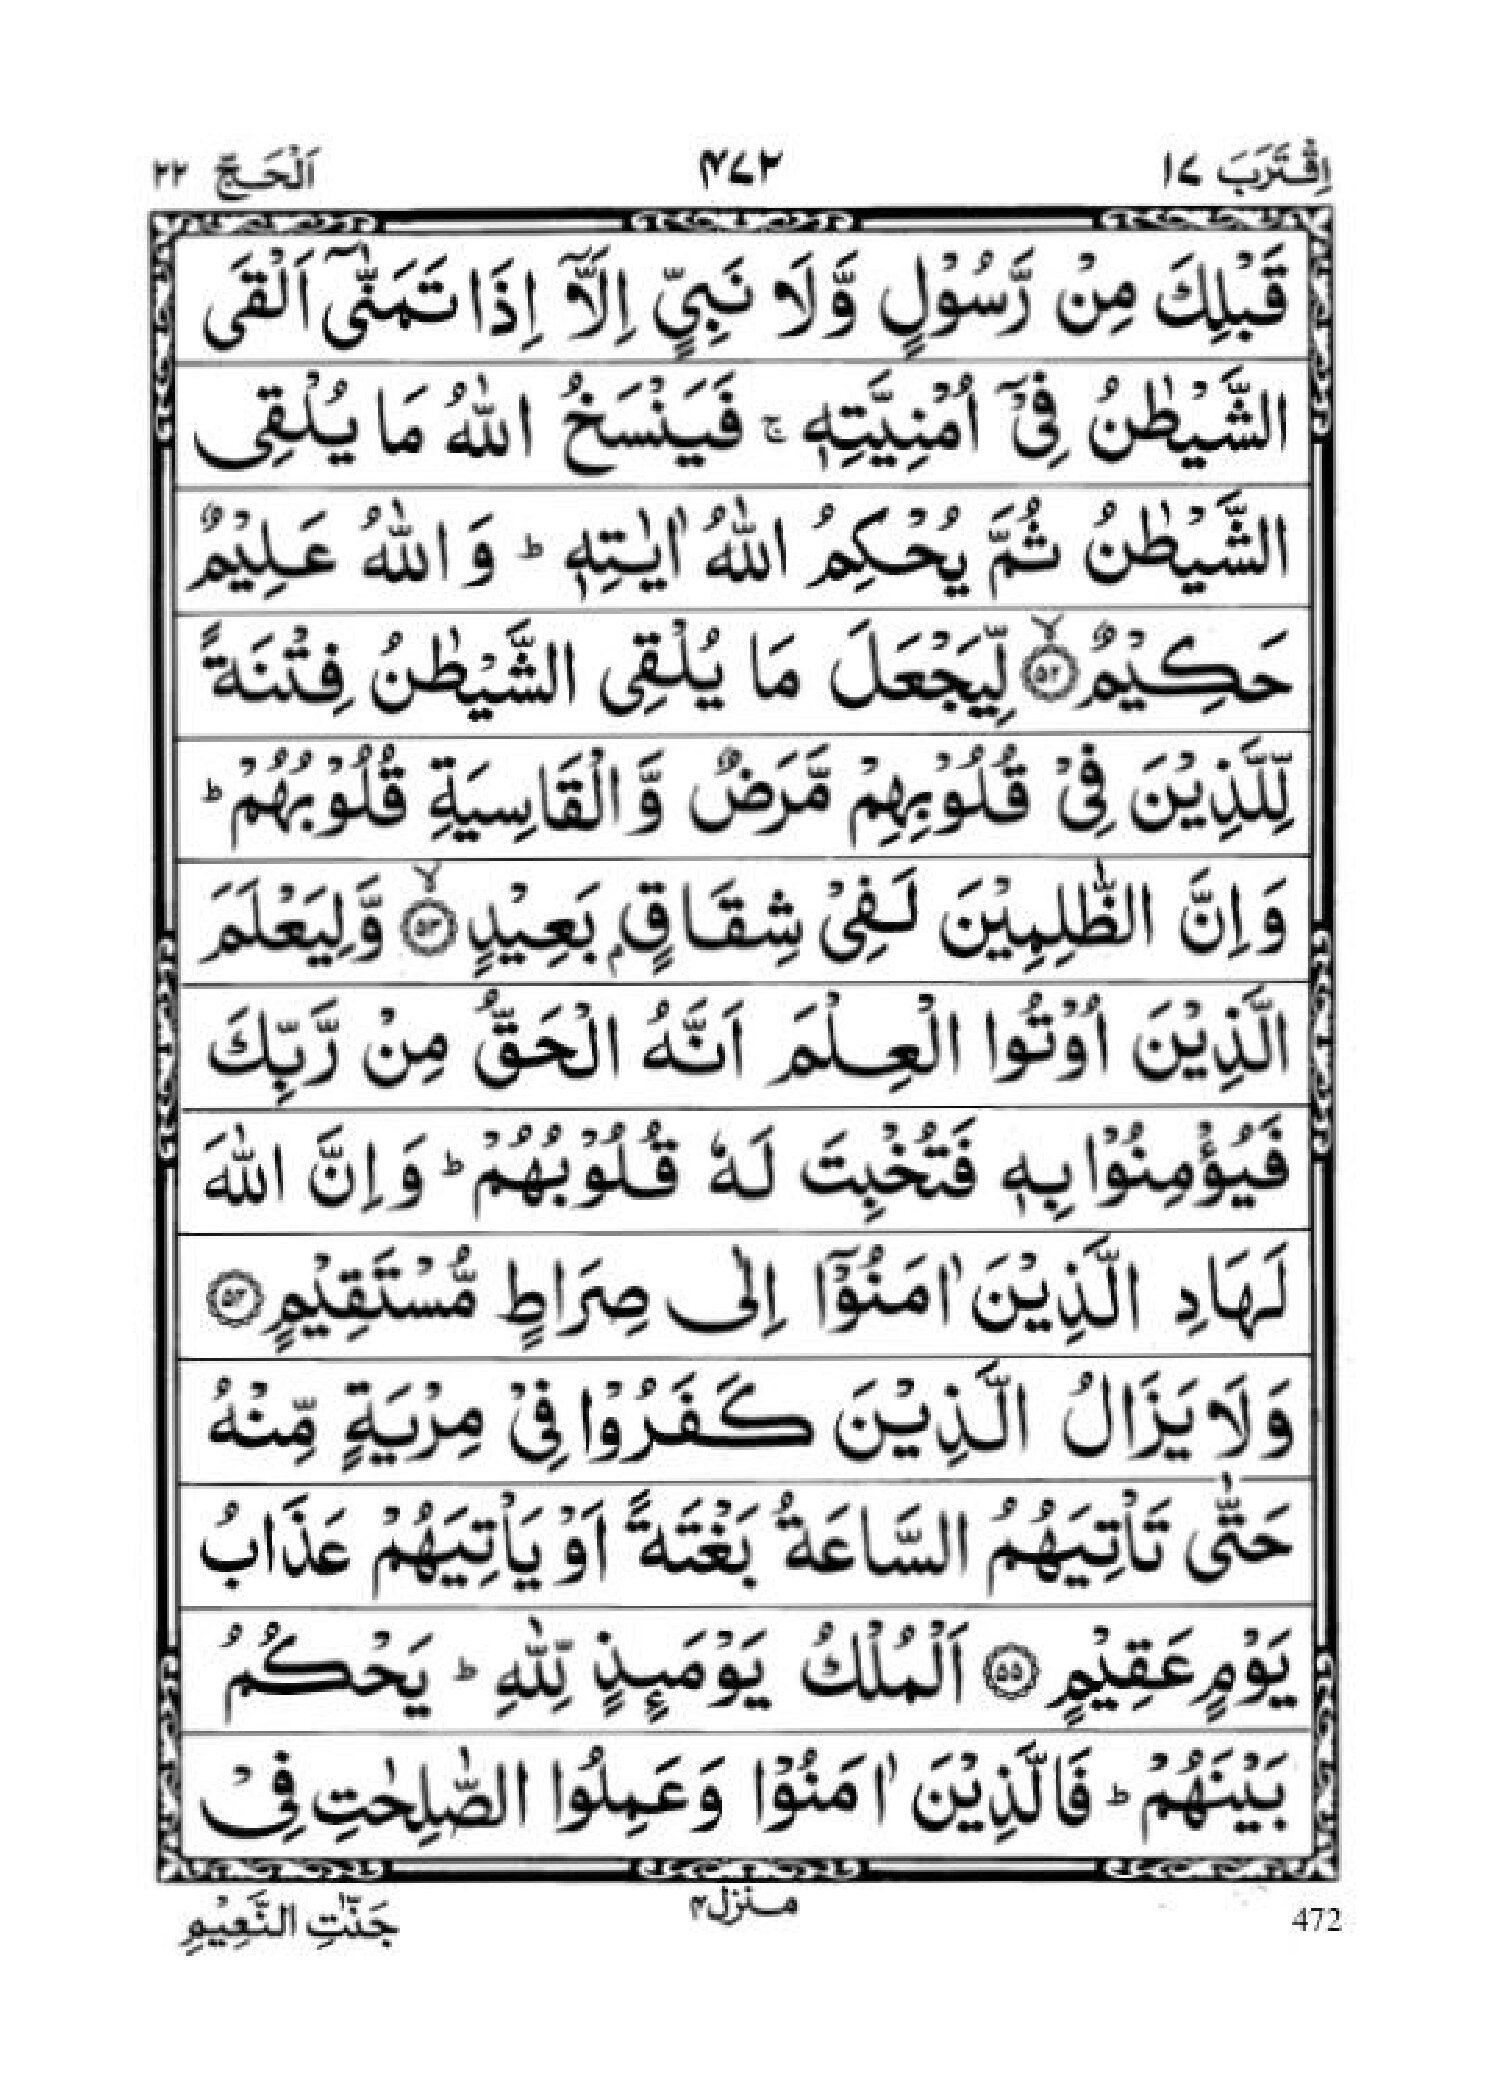 اِقْتَرَبَ ١٧ ٤٧٢ اَلْحَجّ ٢٢
قَبْلِكَ مِنْ رَّسُوْلٍ وَّلَا نَبِيٍّ اِلَّاۤ اِذَا تَمَنّٰۤى اَلْقَى
الشَّيْطٰنُ فِيْۤ اُمْنِيَّتِهٖ ۚ فَيَنْسَخُ اللّٰهُ مَا يُلْقِى
الشَّيْطٰنُ ثُمَّ يُحْكِمُ اللّٰهُ اٰيٰتِهٖ ؕ وَاللّٰهُ عَلِيْمٌ
حَكِيْمٌ ۙ﴿۵۲﴾ لِّيَجْعَلَ مَا يُلْقِى الشَّيْطٰنُ فِتْنَةً
لِّلَّذِيْنَ فِيْ قُلُوْبِهِمْ مَّرَضٌ وَّالْقَاسِيَةِ قُلُوْبُهُمْ ؕ
وَاِنَّ الظّٰلِمِيْنَ لَفِيْ شِقَاقٍۭ بَعِيْدٍ ۙ﴿۵۳﴾ وَّلِيَعْلَمَ
الَّذِيْنَ اُوْتُوا الْعِلْمَ اَنَّهُ الْحَقُّ مِنْ رَّبِّكَ
فَيُؤْمِنُوْا بِهٖ فَتُخْبِتَ لَهٗ قُلُوْبُهُمْ ؕ وَاِنَّ اللّٰهَ
لَهَادِ الَّذِيْنَ اٰمَنُوْۤا اِلٰى صِرَاطٍ مُّسْتَقِيْمٍ ﴿۵۴﴾
وَلَا يَزَالُ الَّذِيْنَ كَفَرُوْا فِيْ مِرْيَةٍ مِّنْهُ
حَتّٰى تَاْتِيَهُمُ السَّاعَةُ بَغْتَةً اَوْ يَاْتِيَهُمْ عَذَابُ
يَوْمٍ عَقِيْمٍ ﴿۵۵﴾ اَلْمُلْكُ يَوْمَىِٕذٍ لِّلّٰهِ ؕ يَحْكُمُ
بَيْنَهُمْ ؕ فَالَّذِيْنَ اٰمَنُوْا وَعَمِلُوا الصّٰلِحٰتِ فِيْ
جَنّٰتِ النَّعِيْمِ منزل۴ 472